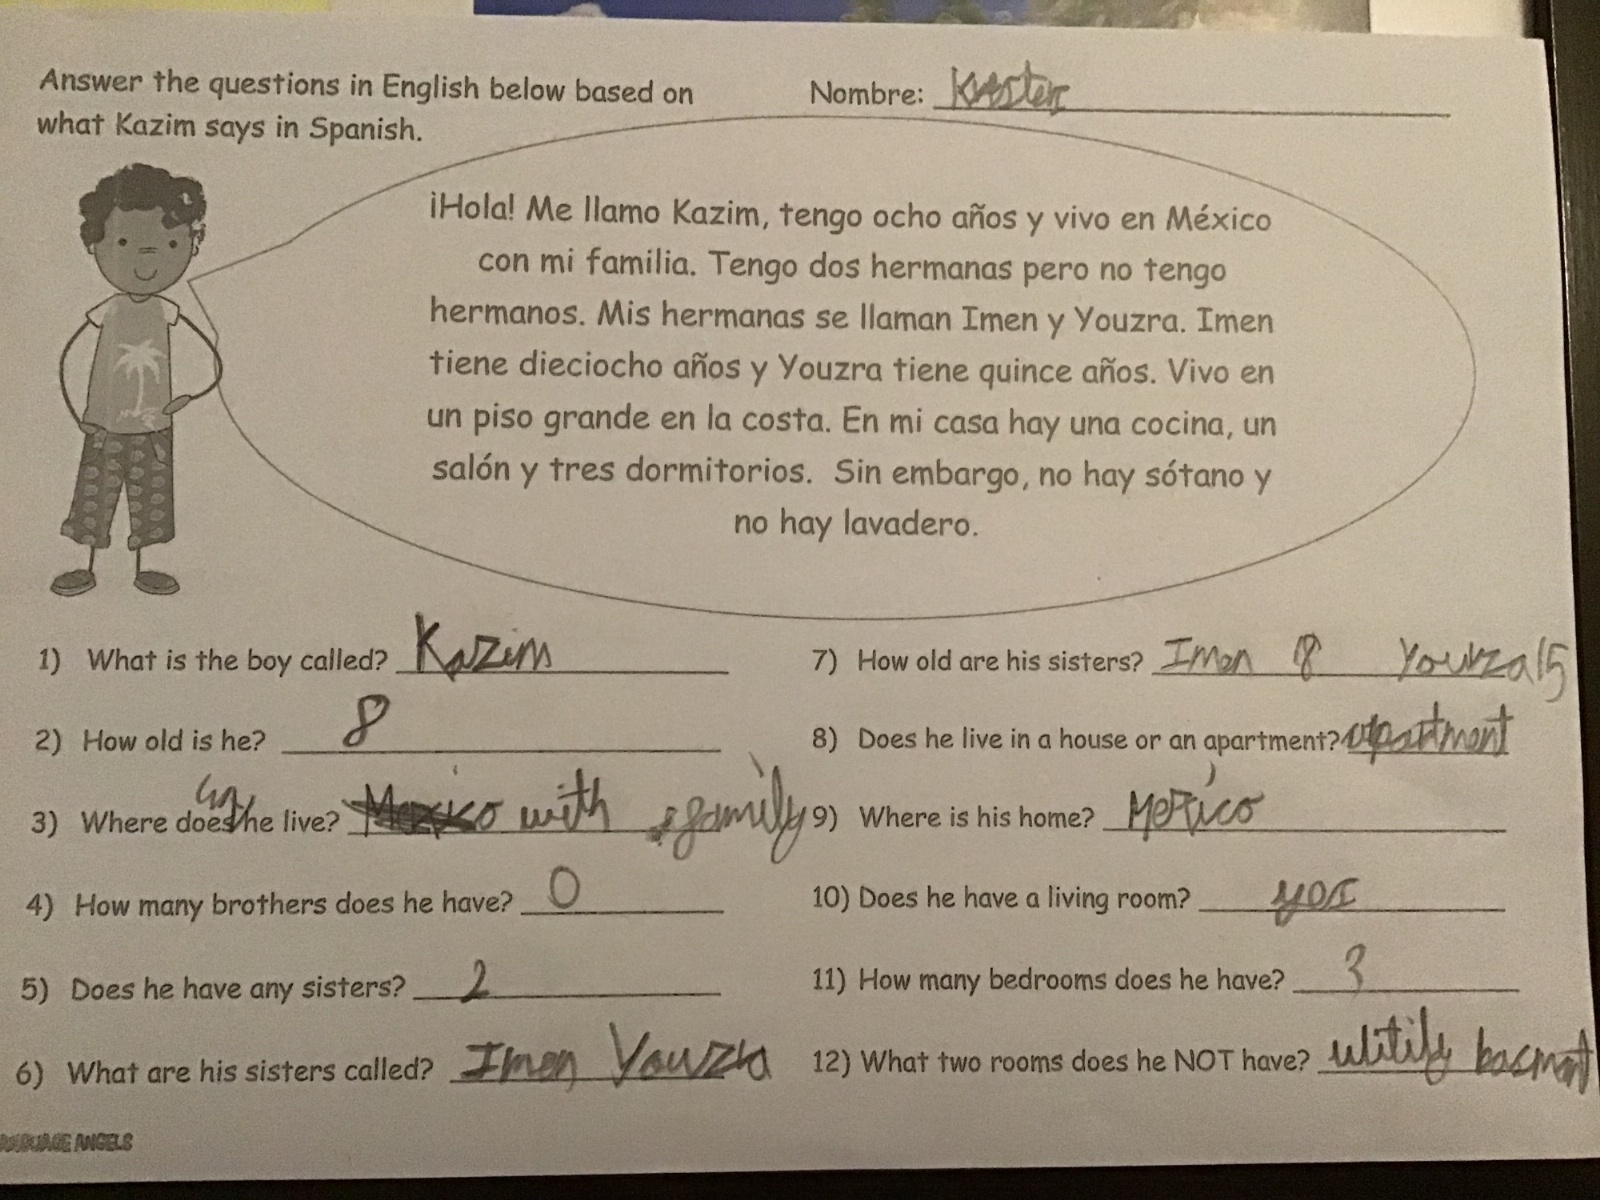 Answer the questions in English below based on
what Kazim says in Spanish.
Nombre:
¡Hola! Me llamo Kazim, tengo ocho años y vivo en México
con mi familia. Tengo dos hermanas pero no tengo
hermanos. Mis hermanas se llaman Imen y Youzra. Imen
tiene dieciocho años y Youzra tiene quince años. Vivo en
un piso grande en la costa. En mi casa hay una cocina, un
salón y tres dormitorios. Sin embargo, no hay sótano y
no hay lavadero.
1) What is the boy called? Kazim
2) How old is he? 8
3) Where does he live? Mexico with family
4) How many brothers does he have? 0
5) Does he have any sisters? 2
6) What are his sisters called? Imen Youzra
7) How old are his sisters? Imen 8 Youzra 15
8) Does he live in a house or an apartment? apartment
9) Where is his home? Mexico
10) Does he have a living room? yes
11) How many bedrooms does he have? 3
12) What two rooms does he NOT have?
LANGUAGE ANGELS